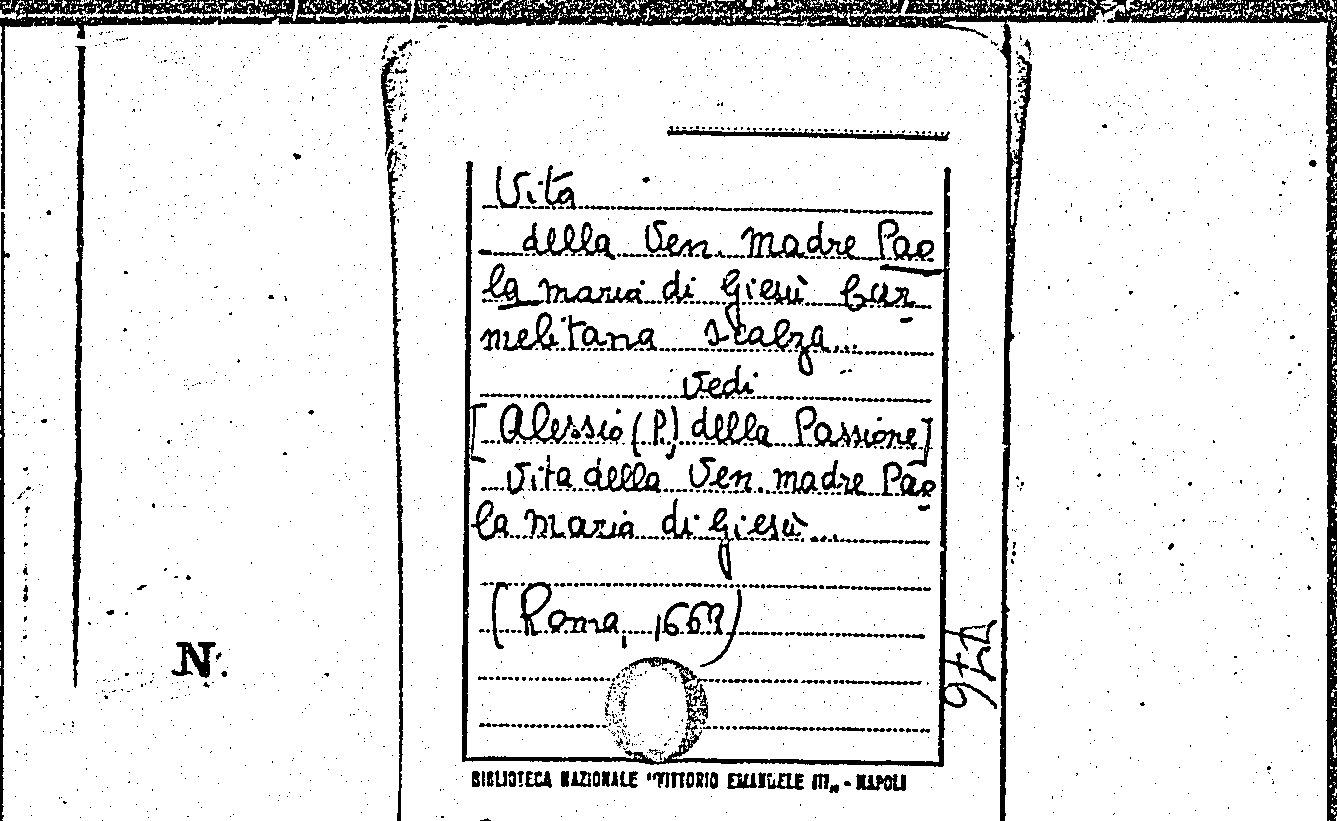 Vita
della Ven. madre Pao
la maria di Giesù Car
melitana scalza...
vedi
[Alessio (P.) della Passione]
Vita della Ven. madre Pao
la maria di Giesù...
(Roma, 1669)
776
N.
BIBLIOTECA NAZIONALE "VITTORIO EMANUELE III" - NAPOLI